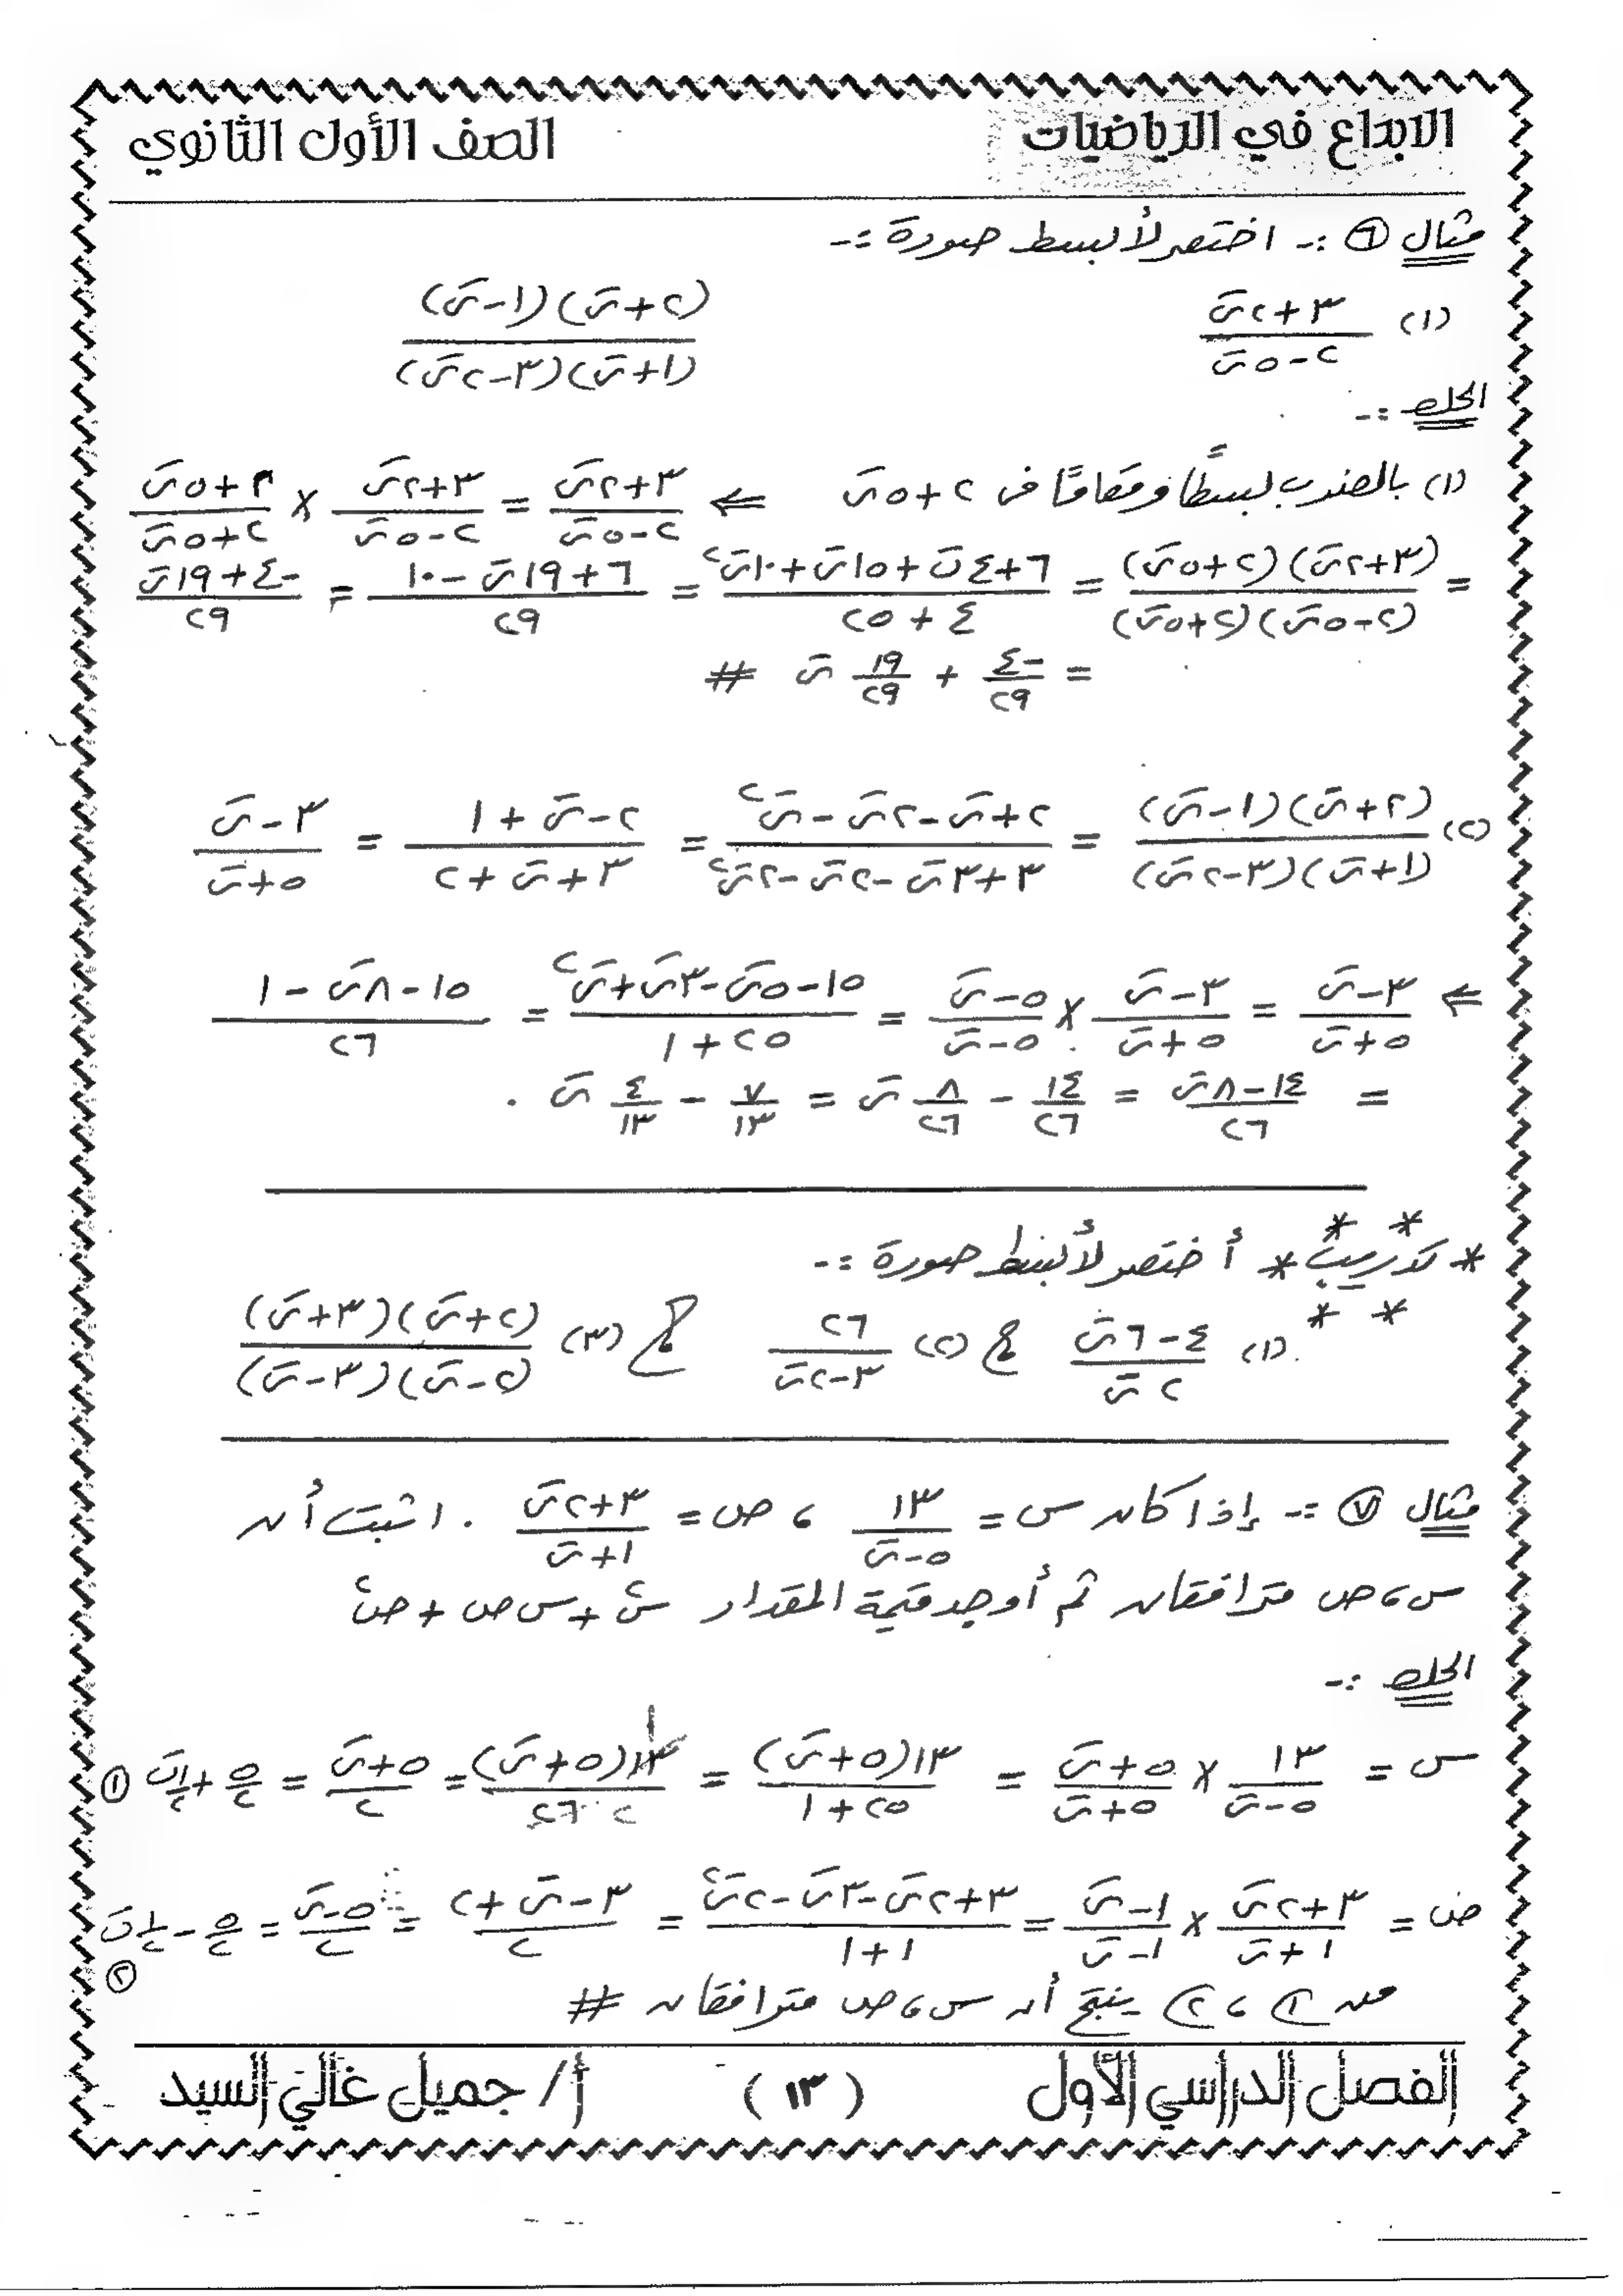 الابداع في الرياضيات
الصف الأول الثانوي
مثال ٦ :- اختصر لأبسط صورة :-
(١) (٣+٢ت)/(٢-٥ت)
((٢+ت)(١-ت))/((١+ت)(٣-٢ت))
الحل :-
(١) بالضرب بسطًا ومقامًا فى ٢+٥ت ⇐ (٣+٢ت)/(٢-٥ت) = (٣+٢ت)/(٢-٥ت) × (٢+٥ت)/(٢+٥ت)
= ((٣+٢ت)(٢+٥ت))/((٢-٥ت)(٢+٥ت)) = (٦+٤ت+١٥ت+١٠ت٢)/(٤+٢٥) = (٦+١٩ت-١٠)/٢٩ = (-٤+١٩ت)/٢٩
= -٤/٢٩ + ١٩/٢٩ ت #
(٢) ((٢+ت)(١-ت))/((١+ت)(٣-٢ت)) = (٢+ت-٢ت-ت٢)/(٣+٣ت-٢ت-٢ت٢) = (٢-ت+١)/(٣+ت+٢) = (٣-ت)/(٥+ت)
⇐ (٣-ت)/(٥+ت) = (٣-ت)/(٥+ت) × (٥-ت)/(٥-ت) = (١٥-٥ت-٣ت+ت٢)/(٢٥+١) = (١٥-٨ت-١)/٢٦
= (١٤-٨ت)/٢٦ = ١٤/٢٦ - ٨/٢٦ ت = ٧/١٣ - ٤/١٣ ت .
* تدريب * أختصر لأبسط صورة :-
(١) (٤-٦ت)/(٢ت) ، (٢) ٢٦/(٣-٢ت) ، (٣) ((٢+ت)(٣+ت))/((٢-ت)(٣-ت))
مثال ٧ :- إذا كان س = ١٣/(٥-ت) ، ص = (٣+٢ت)/(١+ت) . اثبت أن
س ، ص مترافقان ثم أوجد قيمة المقدار س٢ + س ص + ص٢
الحل :-
س = ١٣/(٥-ت) × (٥+ت)/(٥+ت) = ١٣(٥+ت)/(٢٥+١) = ١٣(٥+ت)/٢٦ = (٥+ت)/٢ = ٥/٢ + ١/٢ ت ①
ص = (٣+٢ت)/(١+ت) × (١-ت)/(١-ت) = (٣+٢ت-٣ت-٢ت٢)/(١+١) = (٣-ت+٢)/٢ = (٥-ت)/٢ = ٥/٢ - ١/٢ ت ②
من ① ، ② ينتج أن س ، ص مترافقان #
الفصل الدراسي الأول
( ١٣ )
أ / جميل غالي السيد